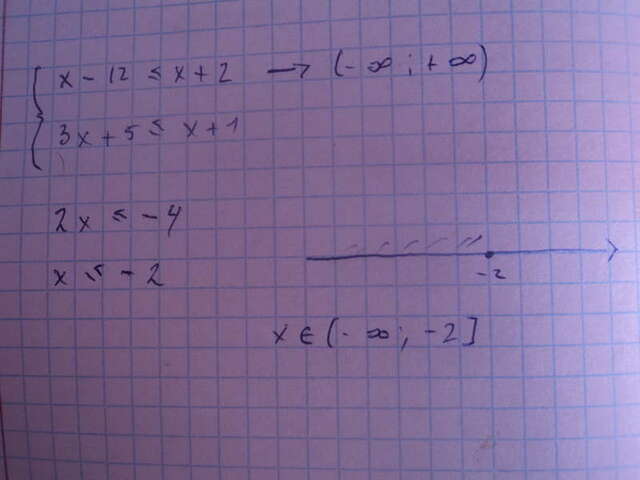 x - 12 ≤ x + 2 → (- ∞ ; + ∞)
3x + 5 ≤ x + 1
2x ≤ -4
x ≤ -2
-2
x ∈ (- ∞; -2]